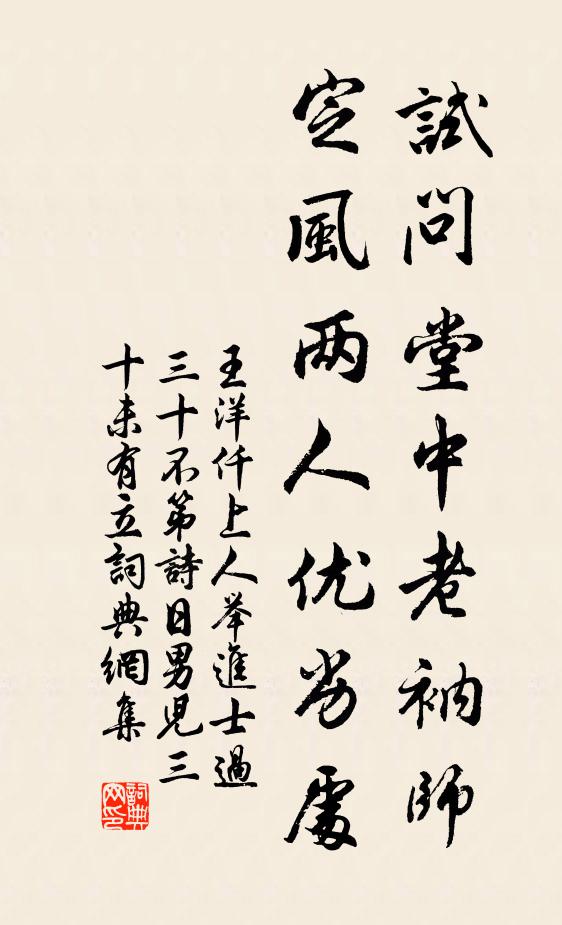 試問堂中老衲師
定風两人优劣處
王洋仟上人举進士過
三十不第詩日男児三
十未有立詞典網集
詞典网印